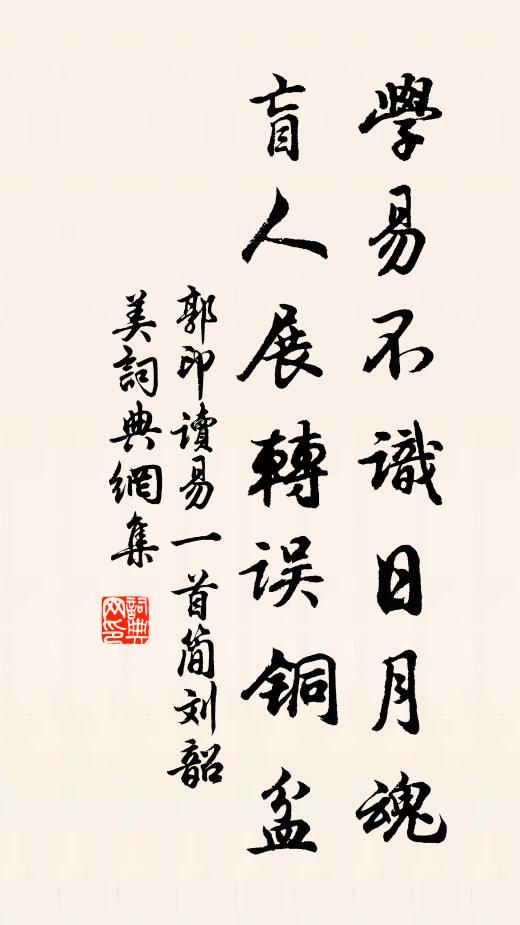 學易不識日月魂
盲人展轉误铜盆
郭印读易一首简刘韶
美詞典網集
詞典
网印